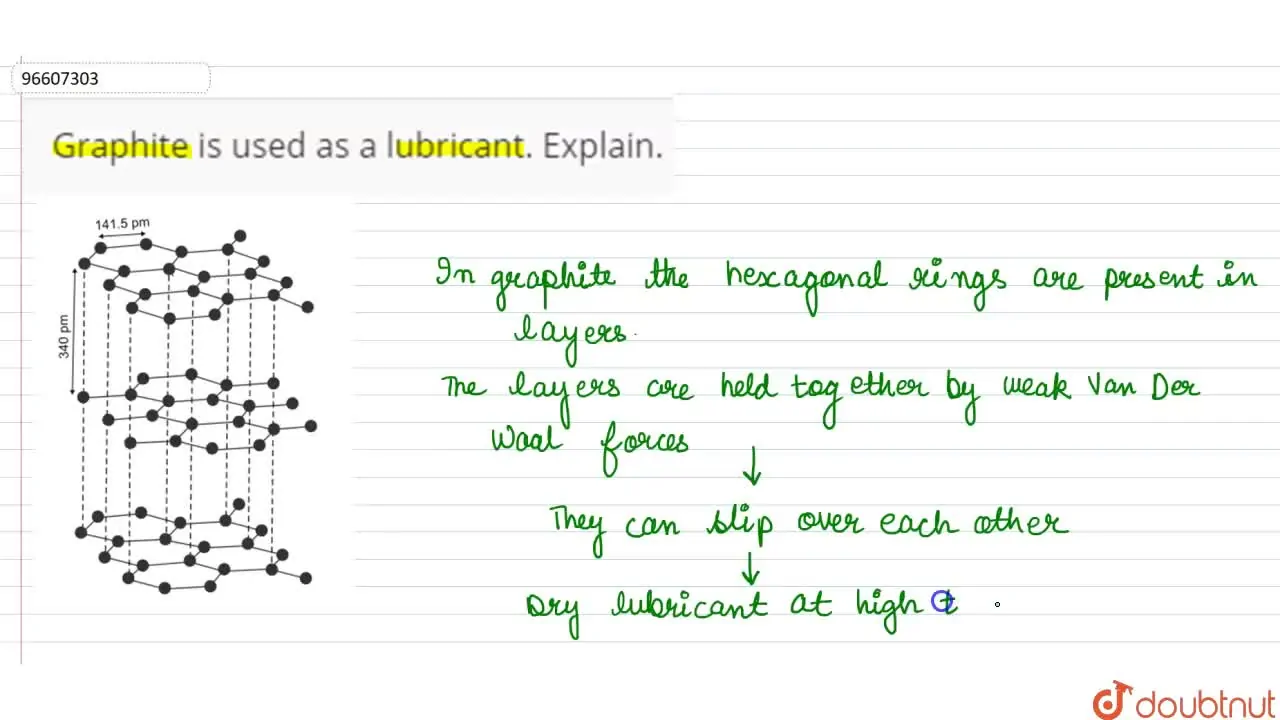 96607303
Graphite is used as a lubricant. Explain.
141.5 pm
340 pm
In graphite the hexagonal rings are present in
layers.
The layers are held together by weak Van Der
Waal forces
They can slip over each other
Dry lubricant at high t
doubtnut